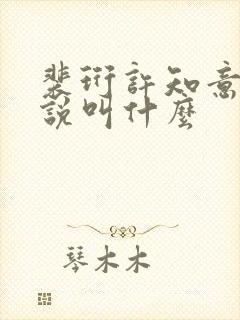 裴衍許知意
說叫什麼
琴木木